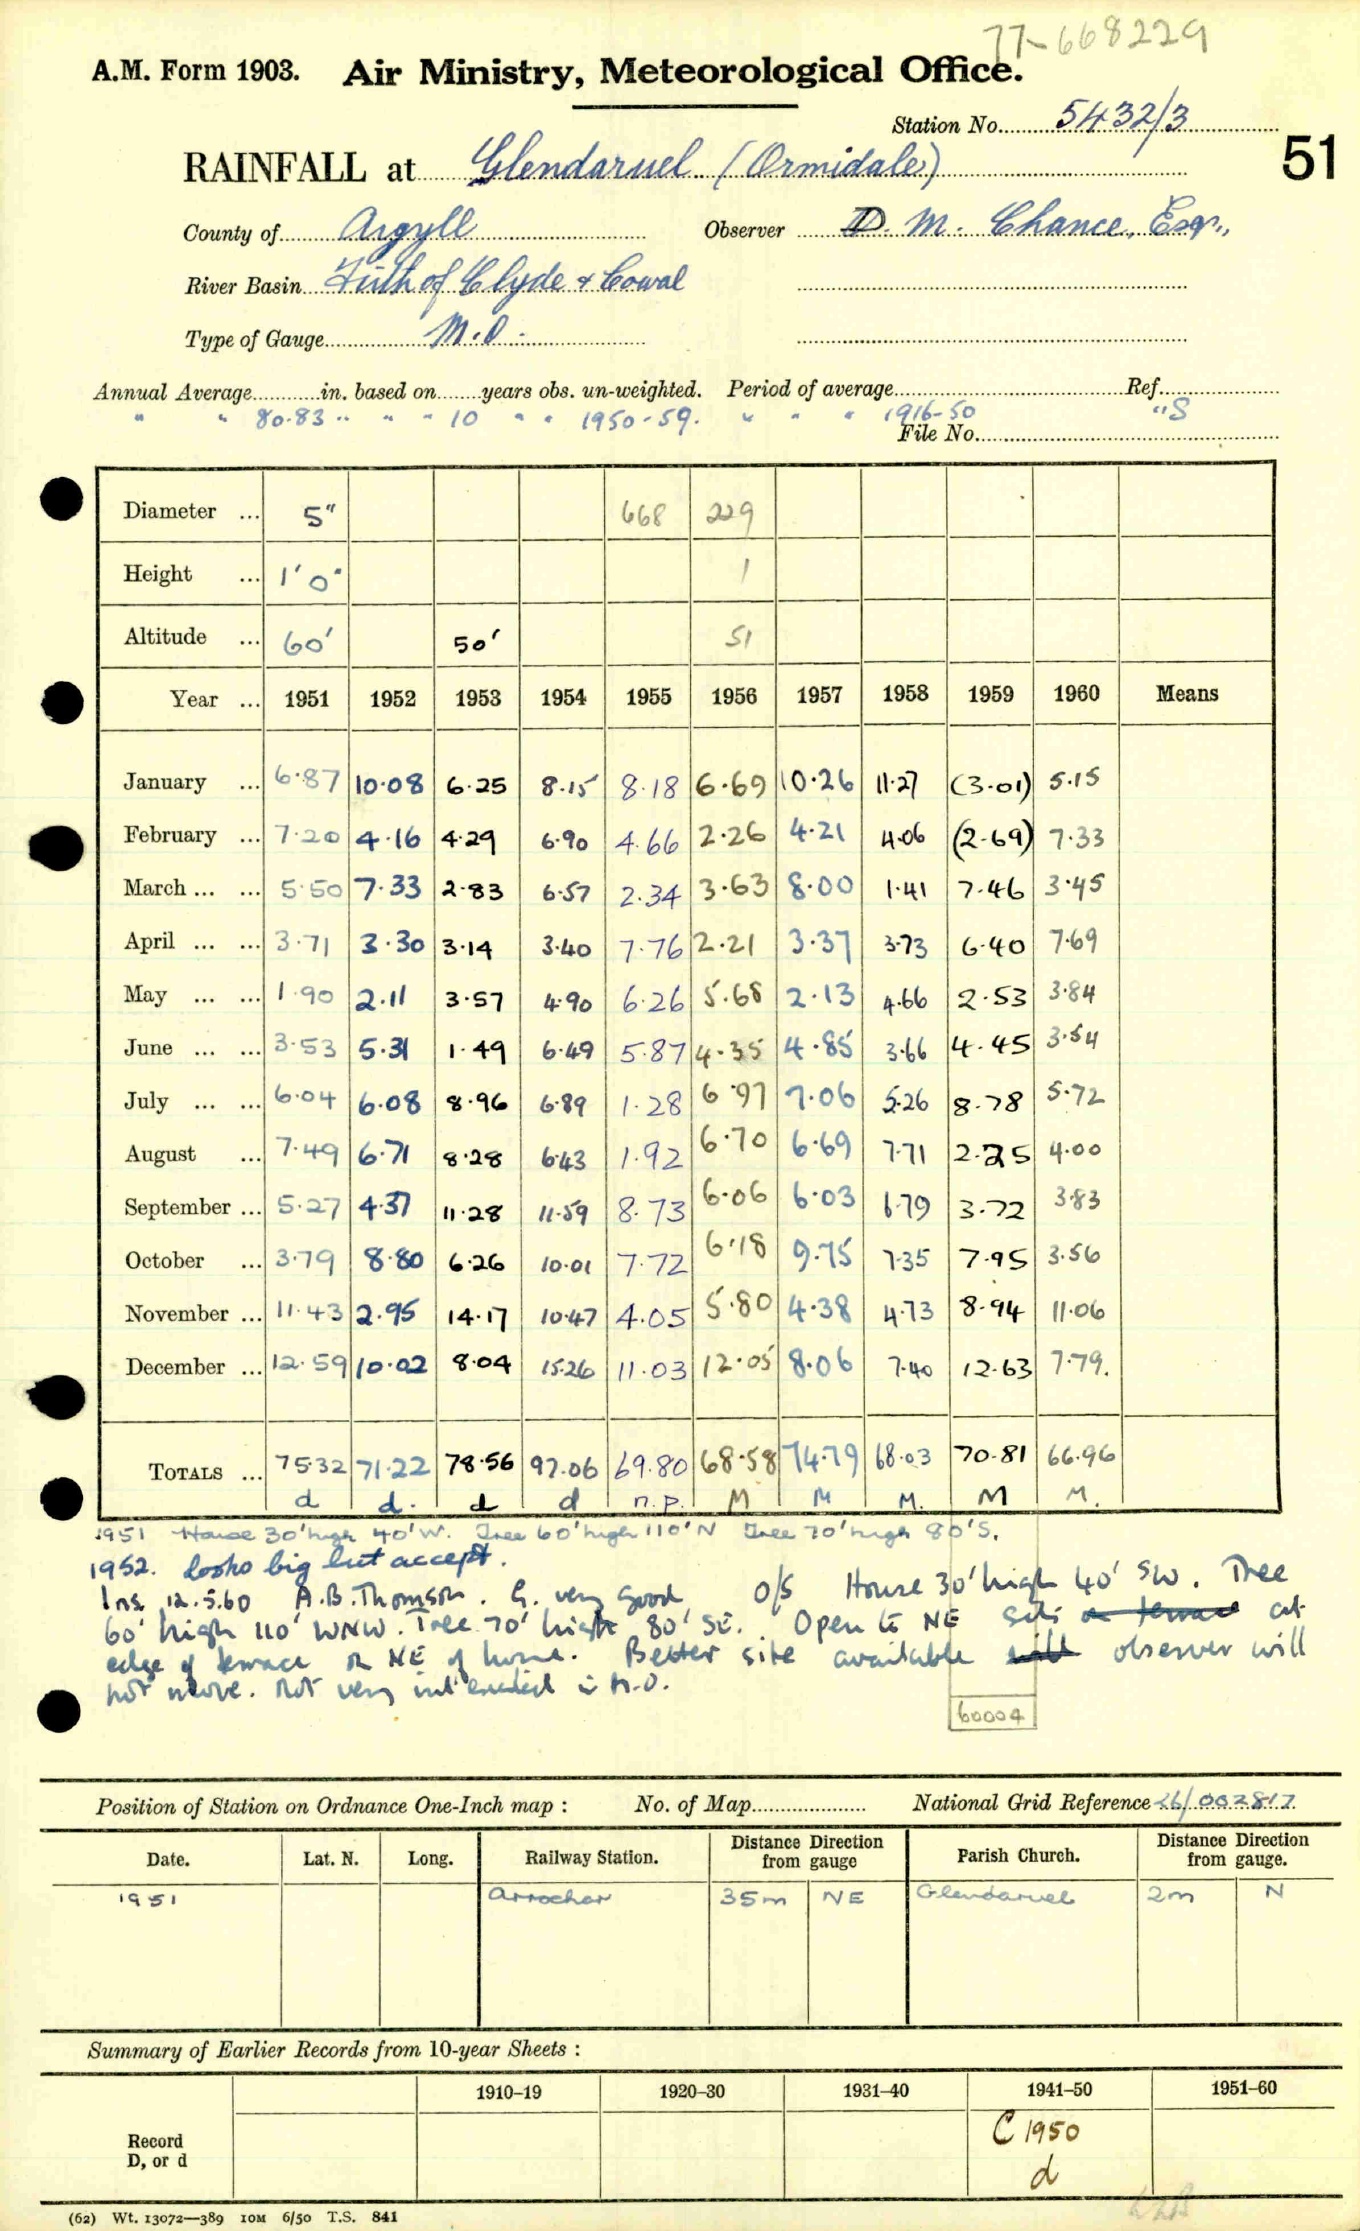 77-668229
A.M. Form 1903. Air Ministry, Meteorological Office.
Station No. 5432/3
51
RAINFALL at Glendaruel (Ormidale)
County of Argyll Observer D. M. Chance, Esqr.,
River Basin Firth of Clyde & Cowal
Type of Gauge M.O.
Annual Average in. based on years obs. un-weighted. Period of average Ref.
" " 80.83 " " " 10 " " 1950-59. " " " 1916-50 "S
File No.
Diameter ... 5" 668 229
Height ... 1'0" 1
Altitude ... 60' 50' 51
Year ... 1951 1952 1953 1954 1955 1956 1957 1958 1959 1960 Means
January ... 6.87 10.08 6.25 8.15 8.18 6.69 10.26 11.27 (3.01) 5.15
February ... 7.20 4.16 4.29 6.90 4.66 2.26 4.21 4.06 (2.69) 7.33
March ... ... 5.50 7.33 2.83 6.57 2.34 3.63 8.00 1.41 7.46 3.45
April ... ... 3.71 3.30 3.14 3.40 7.76 2.21 3.37 3.73 6.40 7.69
May ... ... 1.90 2.11 3.57 4.90 6.26 5.68 2.13 4.66 2.53 3.84
June ... ... 3.53 5.31 1.49 6.49 5.87 4.35 4.85 3.66 4.45 3.54
July ... ... 6.04 6.08 8.96 6.89 1.28 6.97 7.06 5.26 8.78 5.72
August ... 7.49 6.71 8.28 6.43 1.92 6.70 6.69 7.71 2.25 4.00
September ... 5.27 4.37 11.28 11.59 8.73 6.06 6.03 6.79 3.72 3.83
October ... 3.79 8.80 6.26 10.01 7.72 6.18 9.75 7.35 7.95 3.56
November ... 11.43 2.95 14.17 10.47 4.05 5.80 4.38 4.73 8.94 11.06
December ... 12.59 10.02 8.04 15.26 11.03 12.05 8.06 7.40 12.63 7.79.
TOTALS ... 75.32 71.22 78.56 97.06 69.80 68.58 74.79 68.03 70.81 66.96
d d. d d n.p. M M M. M M.
1951 House 30'high 40'W. Tree 60'high 110'N Tree 70'high 80'S.
1952. looks big but accept.
Ins. 12.5.60 A.B. Thomson. G. very good o/s House 30'high 40' SW. Tree
60' high 110' WNW. Tree 70' high 80' SE. Open to NE Site on terrace at
edge of terrace on NE of house. Better site available observer will
not move. Not very interested in M.O.
60004
Position of Station on Ordnance One-Inch map : No. of Map National Grid Reference 26/002817
Date. Lat. N. Long. Railway Station. Distance Direction from gauge Parish Church. Distance Direction from gauge.
1951 Arrochar 35m NE Glendaruel 2m N
Summary of Earlier Records from 10-year Sheets :
1910–19 1920–30 1931–40 1941–50 1951–60
Record D, or d
C 1950
d
(62) Wt. 13072—389 10M 6/50 T.S. 841